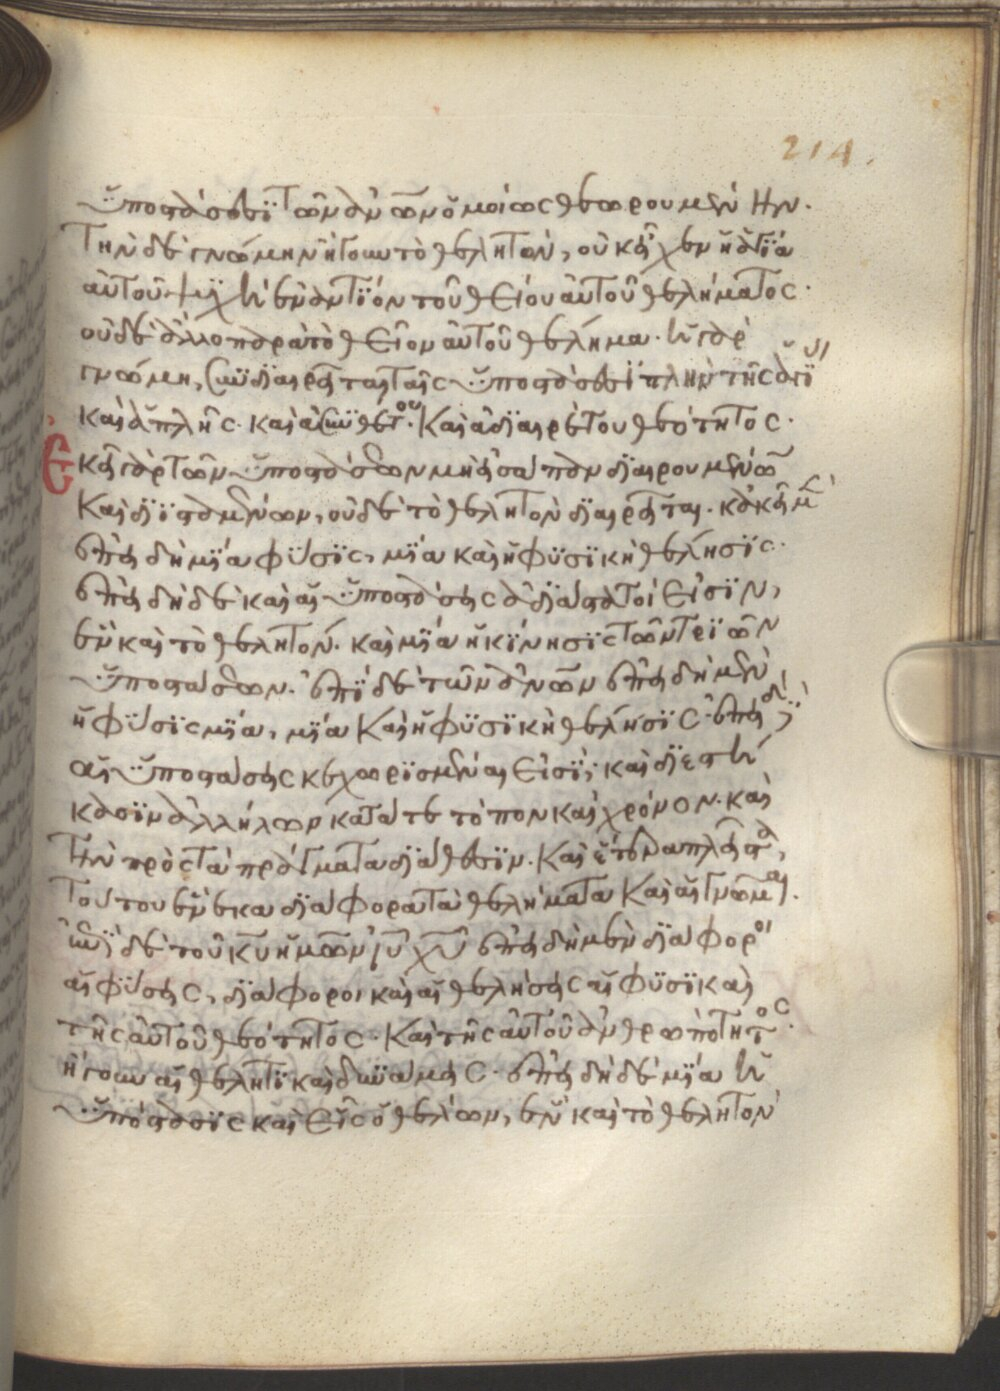 ὑποστάσεσϊ τῶν ἀνῶν ὁμοίως θεωρουμένην.
Τὴν δὲ γνώμην ἤγουν τὸ θελητὸν, οὐκ εἶχεν ἡ ἁγία
αὐτοῦ ψυχὴ ἐναντίον τοῦ θείου αὐτοῦ θελήματος.
οὐδὲ ἄλλο παρὰ τὸ θεῖον αὐτοῦ θέλημα. ἡ γὰρ
γνώμη, συνδιαιρεῖται ταῖς ὑποστάσεσϊ πλὴν τῆς ἁγί
καὶ ἁπλῆς. καὶ ἀσυνθέτου. καὶ ἀδιαιρέτου θεότητος.
Ἐκεῖ γὰρ τῶν ὑποστάσεων μὴ εἰσάπαν διαιρουμένων
καὶ διϊσταμένων, οὐδὲ τὸ θελητὸν διαιρεῖται. κἀκεῖ μὲν
ἐπειδὴ μία φύσις, μία καὶ ἡ φυσικὴ θέλησις.
ἐπειδὴ δὲ καὶ αἱ ὑποστάσεις ἀδιάστατοί εἰσιν,
ἓν καὶ τὸ θελητόν. καὶ μία ἡ κίνησις τῶν τριῶν
ὑποστάσεων. ἐπὶ δὲ τῶν ἀνῶν ἐπειδὴ μὲν
ἡ φύσις μία, μία καὶ ἡ φυσικὴ θέλησις. ἐπειδὴ δὲ
αἱ ὑποστάσεις κεχωρισμέναι εἰσί, καὶ διεστή
κασιν ἀλλήλων κατά τε τόπον καὶ χρόνον. καὶ
τὴν πρὸς τὰ πράγματα διάθεσιν. καὶ ἕτερα πλεῖστα,
τούτου ἕνεκα διάφορα τὰ θελήματα καὶ αἱ γνῶμαι.
ἐπὶ δὲ τοῦ κυ ἡμῶν ιυ χυ ἐπειδὴ μὲν διάφοροι
αἱ φύσεις, διάφοροι καὶ αἱ θελήσεις αἱ φυσικαὶ
τῆς αὐτοῦ θεότητος. καὶ τῆς αὐτοῦ ἀνθρωπότητος.
ἤγουν αἱ θελητικαὶ δυνάμεις. ἐπειδὴ δὲ μία ἡ
ὑπόστασις καὶ εἷς ὁ θέλων, ἓν καὶ τὸ θελητὸν